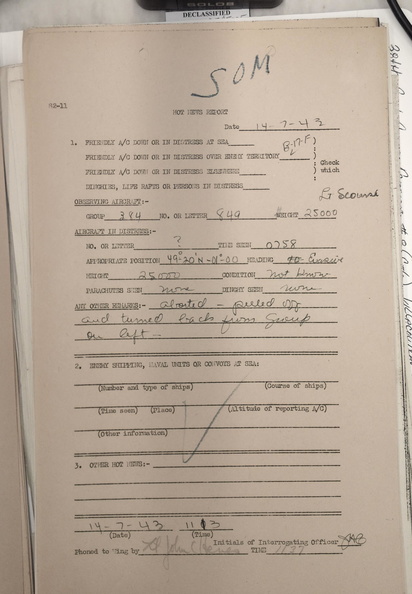 SOLOS
DECLASSIFIED
SOM
RS-11
HOT NEWS REPORT
Date 14-7-43
1. FRIENDLY A/C DOWN OR IN DISTRESS AT SEA
B-17 F
FRIENDLY A/C DOWN OR IN DISTRESS OVER ENEMY TERRITORY
Check
FRIENDLY A/C DOWN OR IN DISTRESS ELSEWHERE
which
DINGHIES, LIFE RAFTS OR PERSONS IN DISTRESS
Lt
OBSERVING AIRCRAFT:-
GROUP 384 NO. OR LETTER 849 HEIGHT 25000
AIRCRAFT IN DISTRESS:-
NO. OR LETTER ? TIME SEEN 0758
APPROPRIATE POSITION 49°20'N- HEADING
HEIGHT 25000 CONDITION Not Known
PARACHUTES SEEN none DINGHY SEEN none
ANY OTHER REMARKS:- aborted - peeled off
and turned back from Group
on left -
2. ENEMY SHIPPING, NAVAL UNITS OR CONVOYS AT SEA:
(Number and type of ships) (Course of ships)
(Time seen) (Place) (Altitude of reporting A/C)
(Other information)
3. OTHER HOT NEWS:-
14-7-43 1113
(Date) (Time) Initials of Interrogating Officer
Phoned to Wing by John TIME 1127